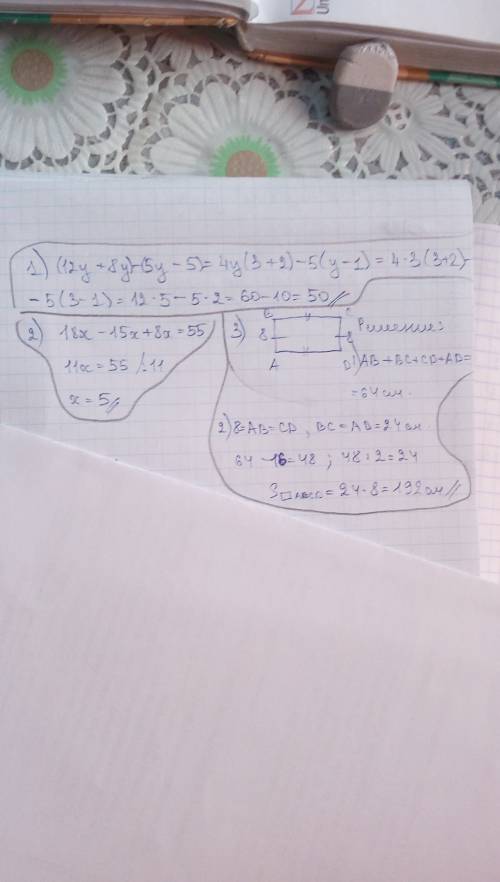 1) (12y + 8y) - (5y - 5) = 4y(3+2) - 5(y-1) = 4·3(3+2) -
- 5(3-1) = 12·5 - 5·2 = 60 - 10 = 50 //
2) 18x - 15x + 8x = 55
11x = 55 /:11
x = 5 //
3) B C Решение:
8 8
A D 1) AB + BC + CD + AD =
= 64 см.
2) 8 = AB = CD, BC = AD = 24 см.
64 - 16 = 48 ; 48 : 2 = 24
= 24·8 = 192 см //